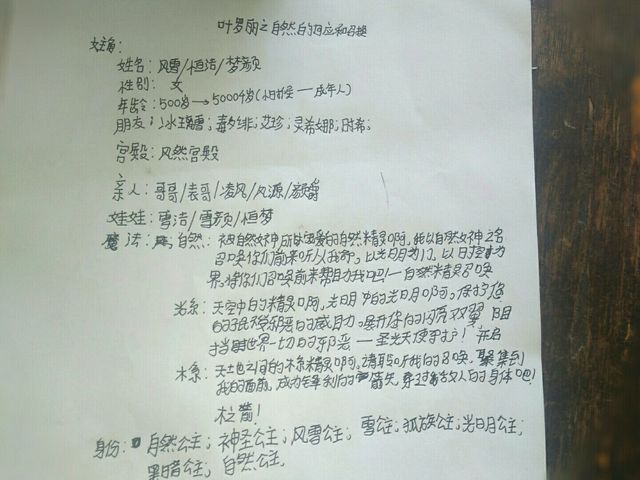 叶罗丽之自然白的回应和召换
女主角:
姓名:风雪/恒洁/梦颜
性别:女
年龄:500岁→50004岁(小时候——成年人)
朋友:冰璃雪;毒夕绯;艾珍;灵希娜;时希;
宫殿:风然宫殿
亲人:哥哥/表哥/凌风/风源/颜爵
娃娃:雪洁/雪颜/恒梦
魔法:自然:被自然女神所宠爱的自然精灵啊,我以自然女神之名
召唤你们前来听从我命,以光明为门,以日空为
界。将你们召唤前来帮助我吧!—自然精灵召唤
光系:天空中的精灵啊,光明中的光明啊。保护您
的子民 邪恶的威胁。展开你的闪亮双翼 阻
挡 世界一切的邪恶—圣光天使守护!
木系:天土地之间的木系精灵啊。请聆听我的召唤,聚集到
我的面前,成为锋利的箭矢,穿过敌人的身体吧!
木之箭!
身份:自然公主;神圣公主;风雪公主;雪公主;狐族公主;光明公主;
黑暗公主,自然公主.